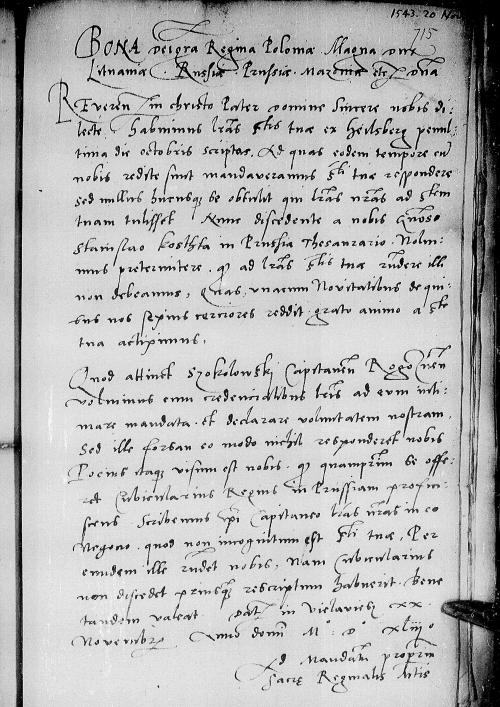 1543. 20 Nov
715
BONA dei gra Regina Poloniæ Magna dux
Lituaniæ. Russiæ. Prussiæ. Mazoviæ etc. dna
Reveren in christo Pater domine Sincere nobis di:
lecte. Habuimus lras Stis tuæ ex Heilsberg penul:
tima die octobris scriptas. Ad quas eodem tempore cu
nobis redite sunt mandaveramus Sti tuæ respondere
sed nullus hucusque se obtulit qui lras nras ad Stem
tuam tulisset. Nunc discedente a nobis Gnoso
Stanislao Kosthka in Prussia Thesaurario. Nolui:
mus pretermitere. quod ad lras Stis tuæ rndere illi
non debeamus, quas unacum Novitatibus de qui:
bus nos sepius cerciores reddit. grato animo a Ste
tua accipimus.
Quod attinet Szokolowski Capitaneum
Volumus eum credencialibus lris ad eum inti:
mare mandata. et declarare voluntatem nostram.
Sed ille forsan eo modo nichil responderet nobis
Pocius itaque visum est nobis. quod quamprim se offe:
ret Cubicularius Regius in Prussiam profici:
scens. Scribemus ipsi Capitaneo lras nras in eo
Negocio. quod non incognitum est Sti tuæ, Per
eundem ille rndet nobis, Nam Cubicularius
non discedet priusque rescriptum habuerit. Bene
tandem valeat. Dat in XX.
Novembr Anno domi M° D° xliii°
Ad Mandatu proprim
Sacrę Reginalis Mtis